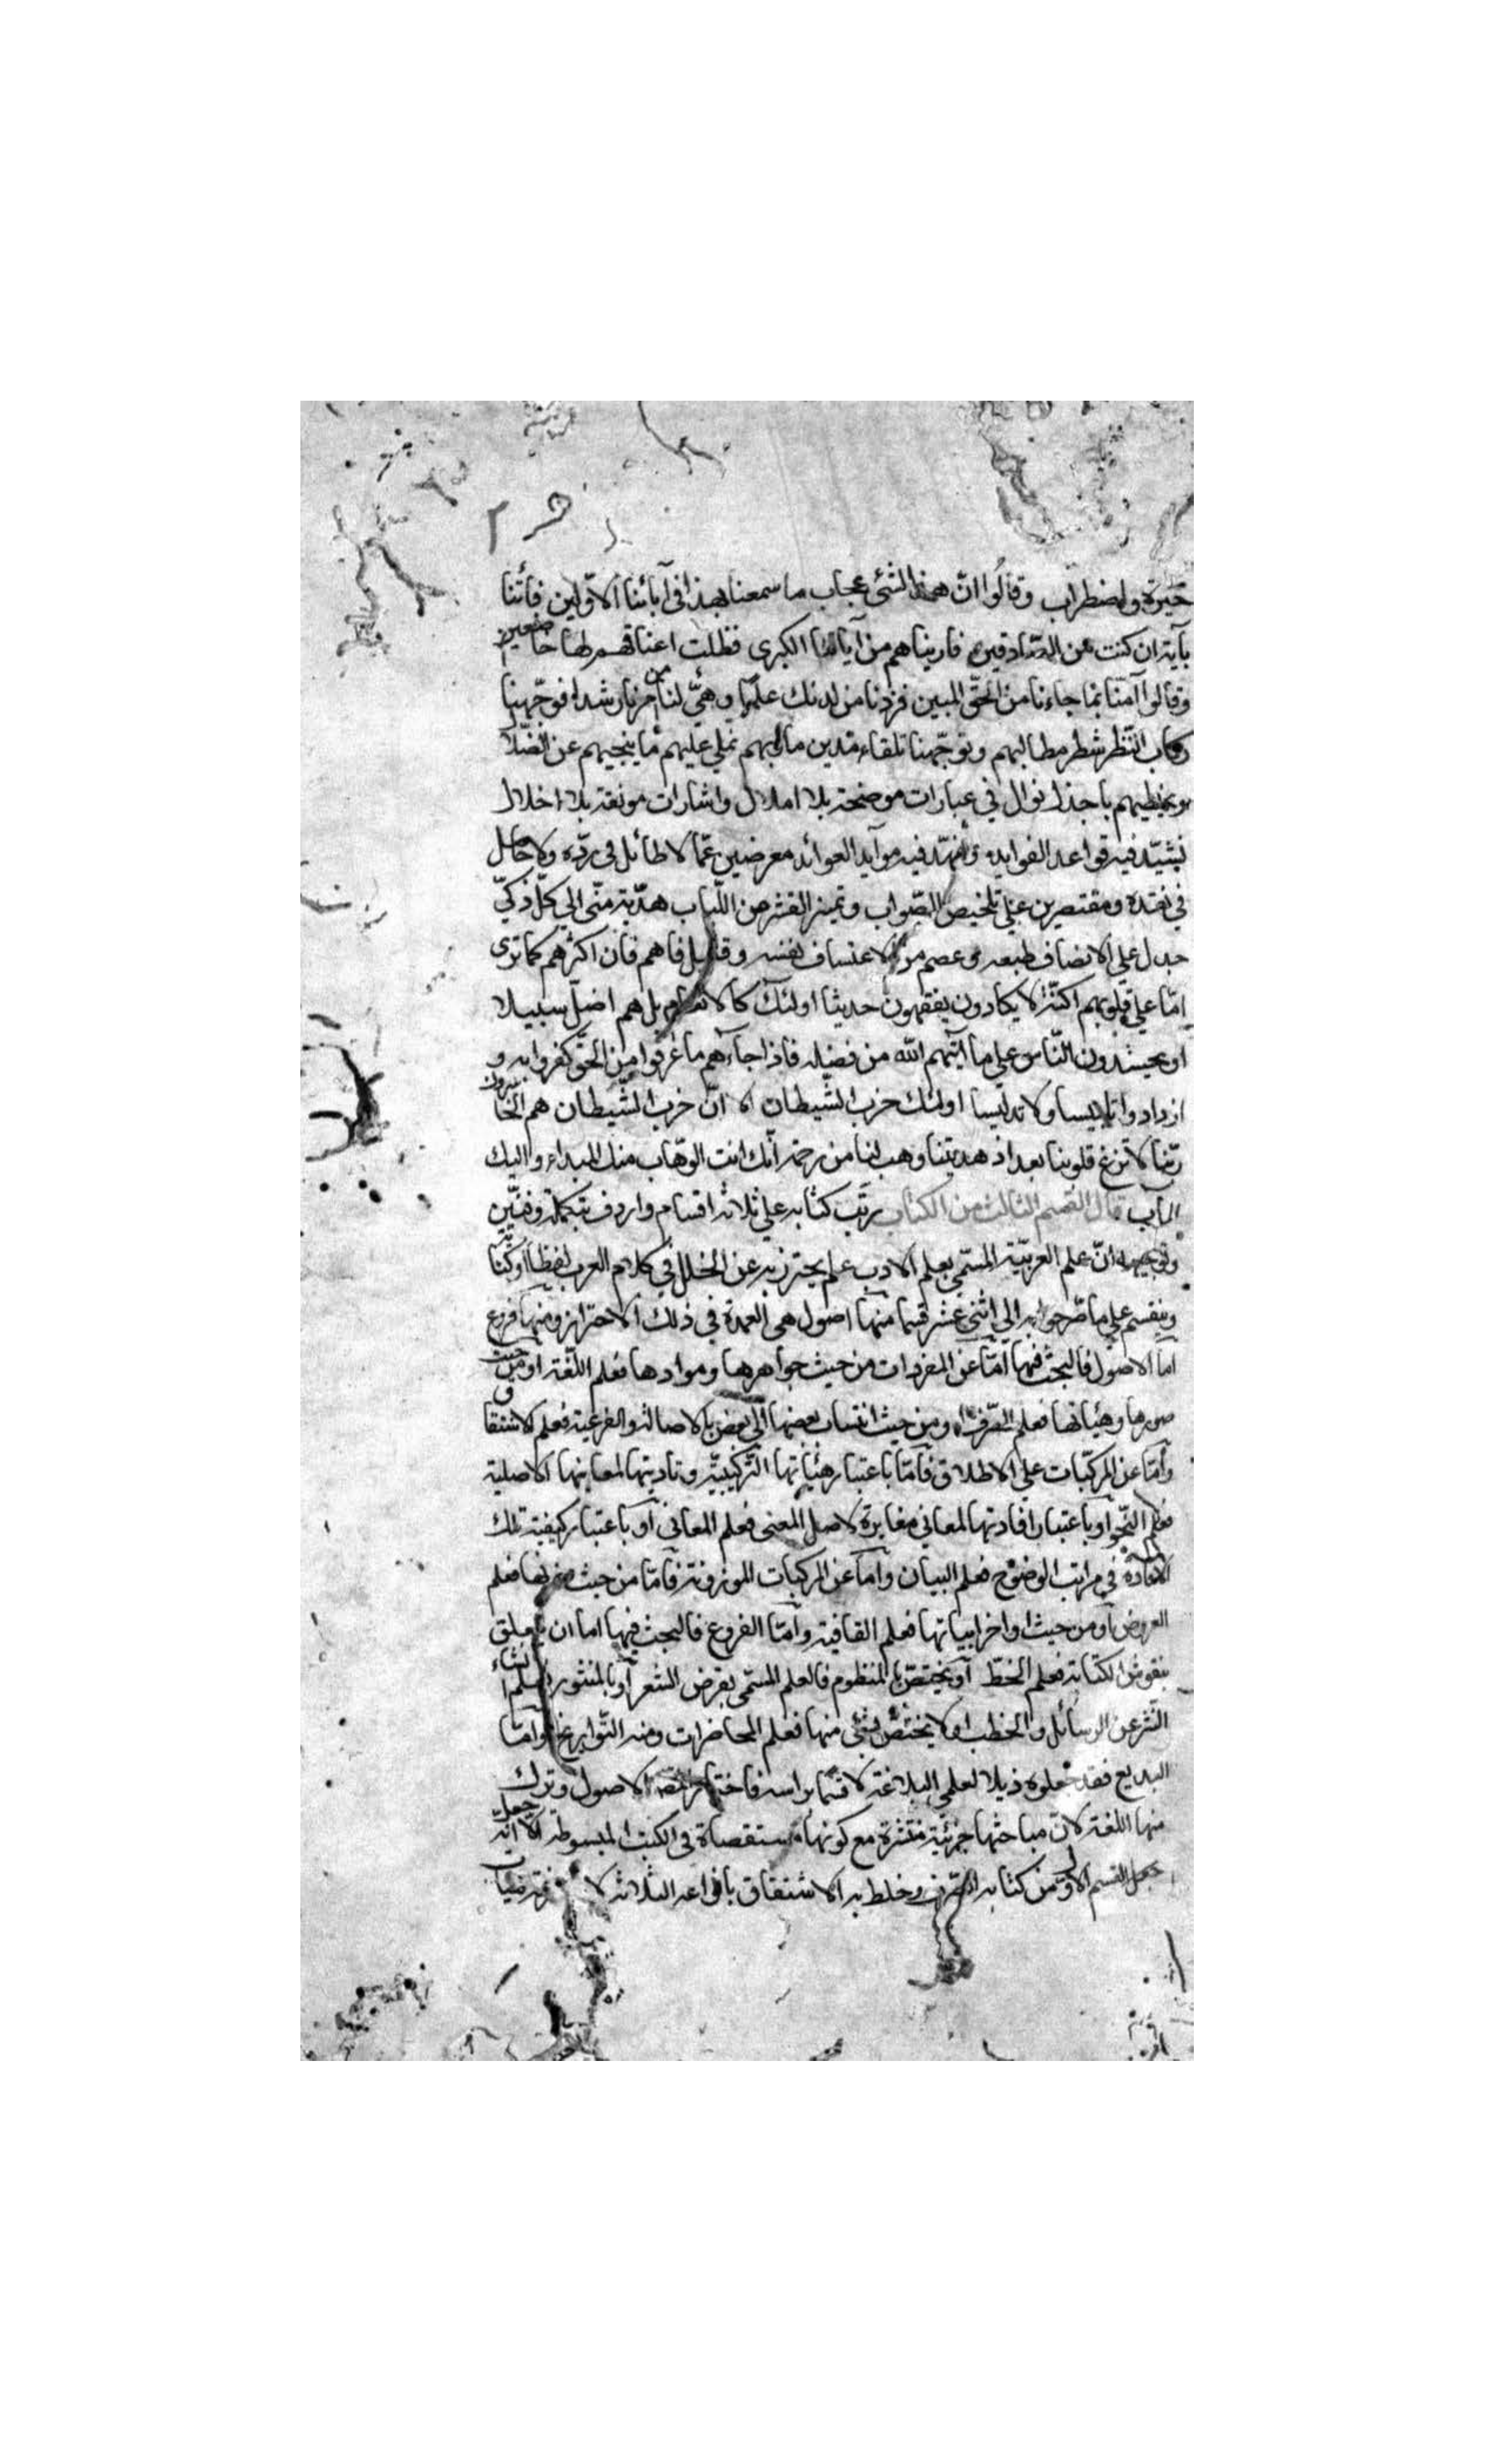 حيرة واضطراب وقالوا انّ هذا لشئ عجاب ما سمعنا بهذا فى آبائنا الاوّلين فأتنا
بآية ان كنت من الصّادقين فاريناهم من آياتنا الكبرى فظلت اعناقهم لها خاضعين
وقالوا آمنّا بما جاءنا من الحقّ المبين فزدنا من لدنك علما وهيّئ لنا من امرنا رشدا فوجّهنا
ركاب النّظر شطر مطالبهم وتوجّهنا تلقاء مدين مآربهم نملي عليهم ما ينجيهم عن الضّلال
باجزل نوال في عبارات موضحة بلا املال واشارات مونقة بلا اخلال
نشيّد فيه قواعد الفوايد ونمهّد فيه موآيد العوائد معرضين عمّا لا طائل فى ردّه ولا حاصل
في نقده ومقتصرين علي تلخيص الصّواب وتميز القشر من اللّباب هديّة منّى الي كلّ ذكيّ
جبل علي الانصاف طبعه وعصم من الاعتساف نفسه وقليل فا هم فان اكثرهم كما ترى
امّا علي قلوبهم اكنّة لا يكادون يفقهون حديثا اولئك كالانعام بل هم اضلّ سبيلا
او يحسدون النّاس علي ما آتيهم الله من فضله فاذا جاءهم ما عرفوا من الحقّ كفروا به و
ازدادوا تلبيسا ولا تدليسا اولئك حزب الشّيطان الا انّ حزب الشّيطان هم الخاسرون
ربّنا لا تزغ قلوبنا بعد اذ هديتنا وهب لنا من رحمة انّك انت الوهّاب منك المبداء واليك
المآب قال القسم الثالث من الكتاب رتّب كتابه علي ثلاثة اقسام واردف بتكملة وفنّين
وتوجيهه انّ علم العربيّة المسمّي بعلم الادب علم يحترز به عن الخلل في كلام العرب لفظا او كتابة
وينقسم علي ما صرّحوا به الى اثنى عشر قسما منها اصول هى العمدة في ذلك الاحتراز ومنها فروع
اما الاصول فالبحث فيها امّا عن المفردات من حيث جواهرها وموادها فعلم اللّغة او من حيث
صورها وهيأتها فعلم الصّرف او من حيث انتساب بعضها الى بعض بالاصالة والفرعية فعلم الاشتقاق
وامّا عن المركّبات علي الاطلاق فامّا باعتبار هيأتها التّركيبيّة وتاديتها لمعانيها الاصلية
فعلم النّحو او باعتبار افادتها لمعاني مغايرة لاصل المعنى فعلم المعانى او باعتبار كيفية تلك
الافادة في مراتب الوضوح فعلم البيان وامّا عن المركبات الموزونة فامّا من حيث وزنها فعلم
العروض او من حيث اواخر ابياتها فعلم القافية وامّا الفروع فالبحث فيها اما ان يتعلق
بنقوش الكتابة فعلم الخطّ او يختصّ بالمنظوم فالعلم المسمّى بقرض الشعر او بالمنثور فعلم انشاء
النّثر عن الرسائل والخطب او لا يختصّ بشئ منها فعلم المحاضرات ومنه التّواريخ وامّا
البديع فقد جعلوه ذيلا لعلمي البلاغة لا قسما براسه فاختار الاصول وترك
منها اللغة لانّ مباحثها جزئيّة منتشرة مع كونها مستقصاة في الكتب المبسوطة الا انّه
جعل القسم الاوّل من كتابه الصّرف وخلط به الاشتقاق بانواعه الثّلاثة